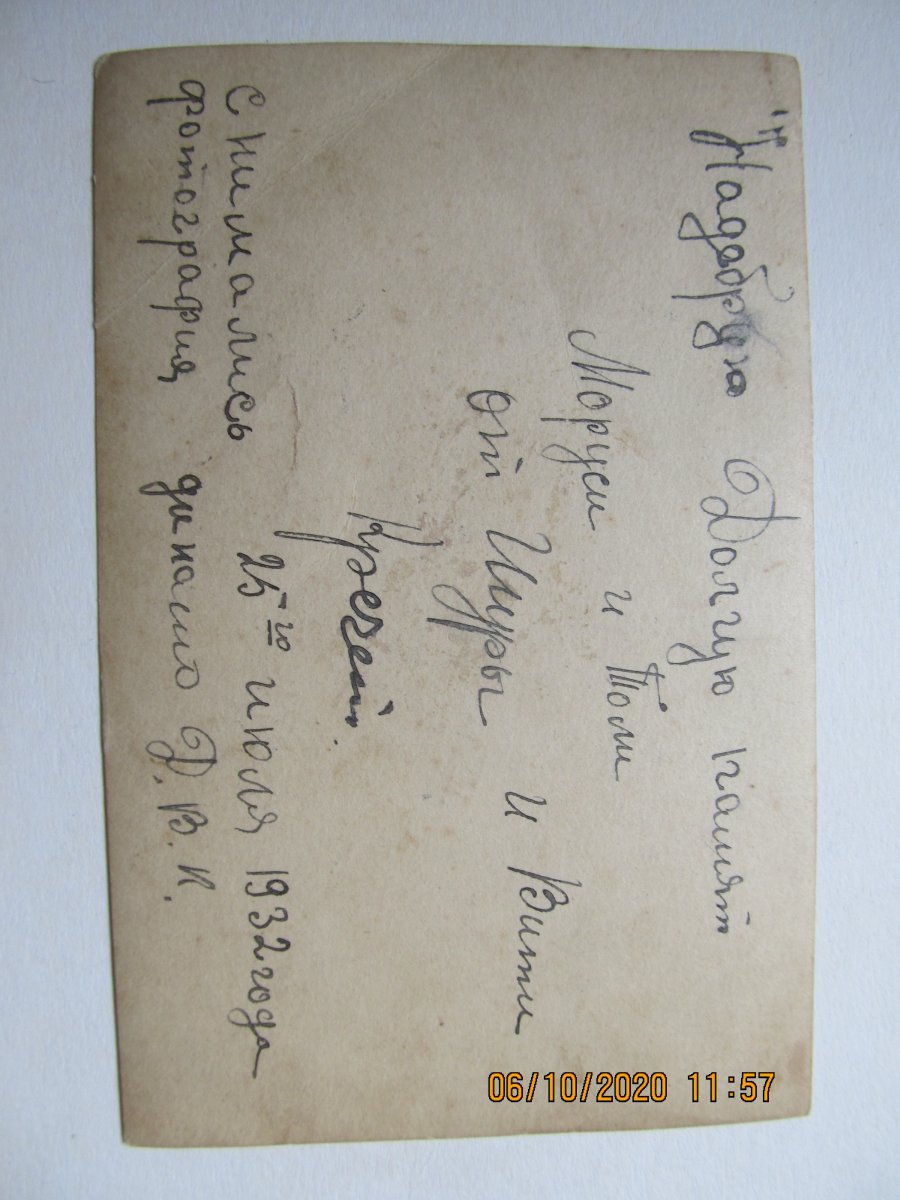 "Надобрую Долгую памят
Моруси и Толи
от Шуры и Витти
Снимались 25-го июля 1932 года
фотография динамо Д. В. К.
06/10/2020 11:57